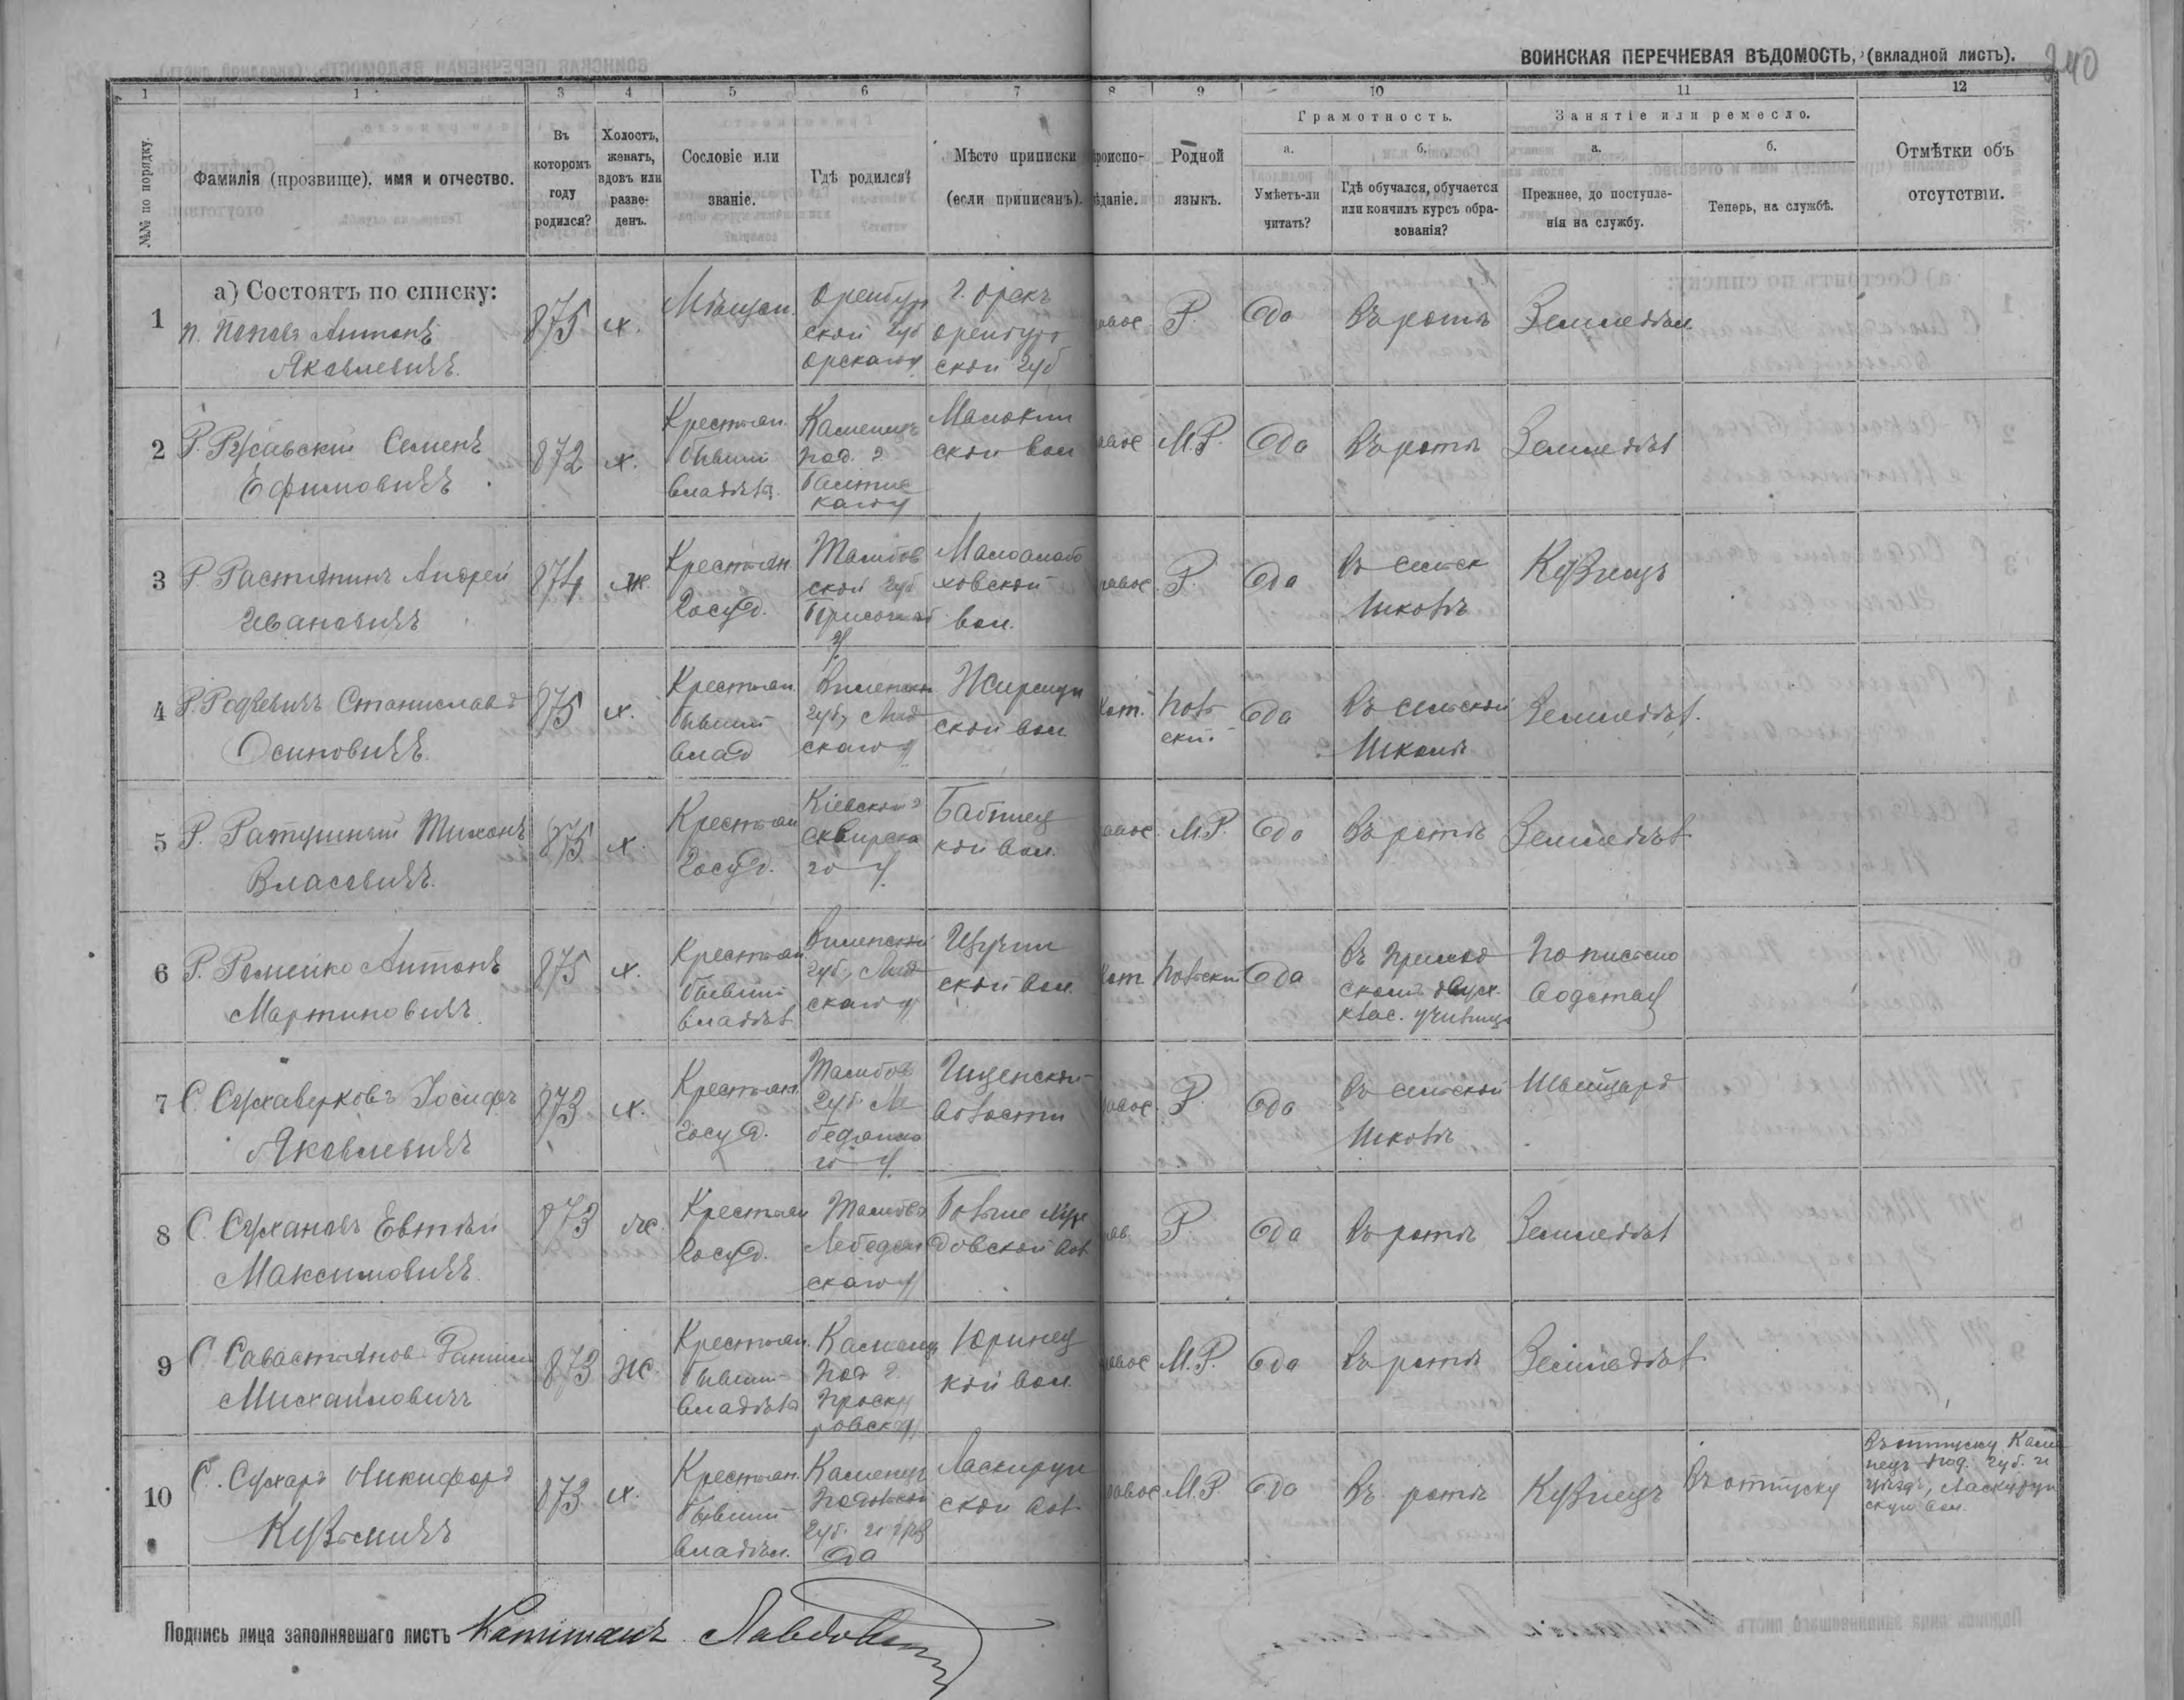 ВОИНСКАЯ ПЕРЕЧНЕВАЯ ВѢДОМОСТЬ, (вкладной листъ).
240
1 1 3 4 5 6 7 8 9 10 11 12
№№ по порядку.
Фамилія (прозвище), имя и отчество.
Въ
которомъ
году
родился?
Холостъ,
женатъ,
вдовъ или
разве-
денъ.
Сословіе или
званіе.
Гдѣ родился?
Мѣсто приписки
(если приписанъ).
ѣроиспо-
ѣданіе.
Родной
языкъ.
Грамотность.
а.
Умѣетъ-ли
читать?
б.
Гдѣ обучался, обучается
или кончилъ курсъ обра-
зованія?
Занятіе или ремесло.
а.
Прежнее, до поступле-
нія на службу.
б.
Теперь, на службѣ.
Отмѣтки объ
отсутствіи.
а) Состоятъ по списку:
1
П. Поповъ Антонъ
Яковлевичъ
875
х.
Мѣщан.
Оренбург
ской губ
Орскаго у
г. Орскъ
Оренбург
ской губ
Р.
Да
Въ ротѣ
Земледѣл
2
Р. Русавский Семенъ
Ефимовичъ
872
х.
Крестьян.
бывший
владѣл.
Каменец
под. г.
скои вол
М.Р.
Да
Въ ротѣ
Земледѣл
3
Р. Растяпинъ Андрей
Ивановичъ
874
ж.
Крестьян.
Госуд.
Тамбов
ской губ
у
ховской
вол.
Р.
Да
Въ сельск
школѣ
Кузнецъ
4
Р. Родзевичъ Станиславъ
Осиповичъ
875
х.
Крестьян.
бывший
влад
Виленской
губ, Лид
скаго у
Жирмун
ской вол
Кат.
Поль
ский
Да
Въ сельской
школѣ
Земледѣл.
5
Р. Ратушный Тихонъ
Власовичъ
875
х.
Крестьян
Госуд.
Кіевской г
Сквирска
го у.
Бабинец
кой вол.
М.Р.
Да
Въ ротѣ
Земледѣл
6
Р. Ромейко Антонъ
Мартиновичъ
875
х.
Крестьян
бывший
владѣл
Виленской
губ, Лид
скаго у
ской вол.
Кат.
Польский
Да
Въ приход
скомъ двух.
клас. училищѣ
По письмо
водству
7
С. Сухаверковъ Іосифъ
Яковлевичъ
873
х.
Крестьян.
госуд.
Тамбов
губ. Ле
бедянска
го у
волости
Р.
Да
Въ сельской
школѣ
Швейцаръ
8
С. Сухановъ Евтѣй
Максимовичъ
873
ж.
Крестьян
Госуд.
Тамбов
Лебедян
скаго у
довской вол
Р.
Да
Въ ротѣ
Земледѣл
9
С. Савастьянов
Михаиловичъ
873
ж.
Крестьян.
бывший
владѣл
Каменец
Под г.
Проску
ровск. у
Юринец
кой вол.
М.Р.
Да
Въ ротѣ
Земледѣл.
10
С. Сухаръ Никифоръ
Кузьмичъ
873
х.
Крестьян.
бывший
владѣл.
Каменец
Подольской
губ. и уѣз
да
Ласкорун
ской вол
М.Р.
Да
Въ ротѣ
Кузнецъ
Въ отпуску
Въ отпуску Каме
нецъ Под. губ. и
уѣзда, Ласкорун
скую вол.
Подпись лица заполнявшаго листъ Капитанъ